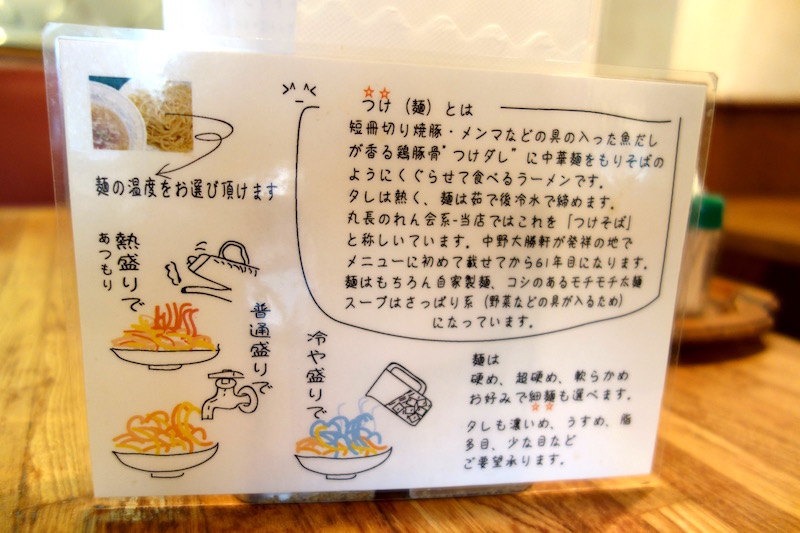 つけ（麺）とは
短冊切り焼豚・メンマなどの具の入った魚だし
が香る鶏豚骨"つけダレ"に中華麺をもりそばの
ようにくぐらせて食べるラーメンです。
タレは熱く、麺は茹で後冷水で締めます。
丸長のれん会系-当店ではこれを「つけそば」
と称しいています。中野大勝軒が発祥の地で
メニューに初めて載せてから61年目になります。
麺はもちろん自家製麺、コシのあるモチモチ太麺
スープはさっぱり系（野菜などの具が入るため）
になっています。
麺の温度をお選び頂けます
熱盛りで
あつもり
普通盛りで
冷や盛りで
麺は
硬め、超硬め、軟らかめ
お好みで細麺も選べます。
タレも濃いめ、うすめ、脂
多目、少な目など
ご要望承ります。